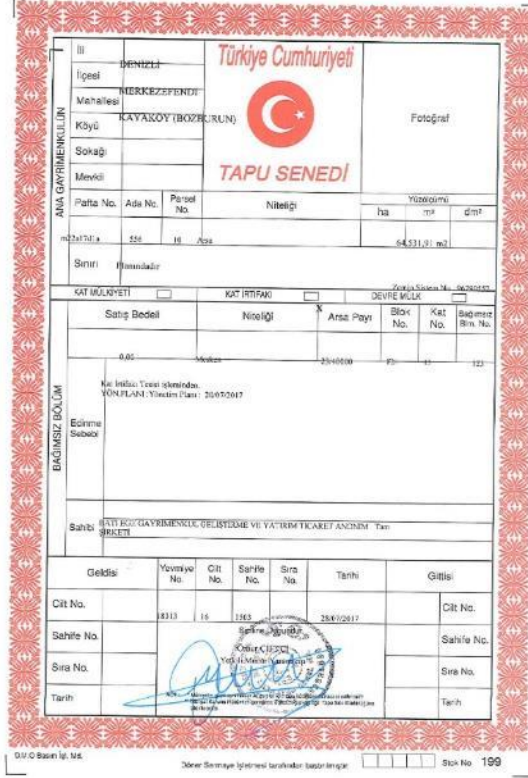 Türkiye Cumhuriyeti
TAPU SENEDİ
Fotoğraf
ANA GAYRİMENKULÜN
İli DENİZLİ
İlçesi MERKEZEFENDİ
Mahallesi
Köyü KAYAKÖY (BOZBURUN)
Sokağı
Mevkii
Pafta No. Ada No. Parsel No. Niteliği Yüzölçümü
ha m² dm²
556 16 Arsa 64,531,91 m2
Sınırı Planındadır
Zemin Sistem No
KAT MÜLKİYETİ KAT İRTİFAKI X DEVRE MÜLK
BAĞIMSIZ BÖLÜM
Satış Bedeli Niteliği Arsa Payı Blok No. Kat No. Bağımsız Blm. No.
0,00 Mesken 123
Edinme Sebebi
Kat İrtifakı Tesisi işleminden.
YÖN.PLANI :Yönetim Planı : 20/07/2017
Sahibi BATI EGE GAYRİMENKUL GELİŞTİRME VE YATIRIM TİCARET ANONİM Tam
ŞİRKETİ
Geldisi Yevmiye No. Cilt No. Sahife No. Sıra No. Tarihi Gittisi
Cilt No. 18313 16 1503 28/07/2017 Cilt No.
Sahife No. Siciline Uygundur Sahife No.
Sıra No. Sıra No.
Tarih Tarih
D.M.O Basım İşl. Md.
Döner Sermaye İşletmesi tarafından bastırılmıştır.
Stok No 199